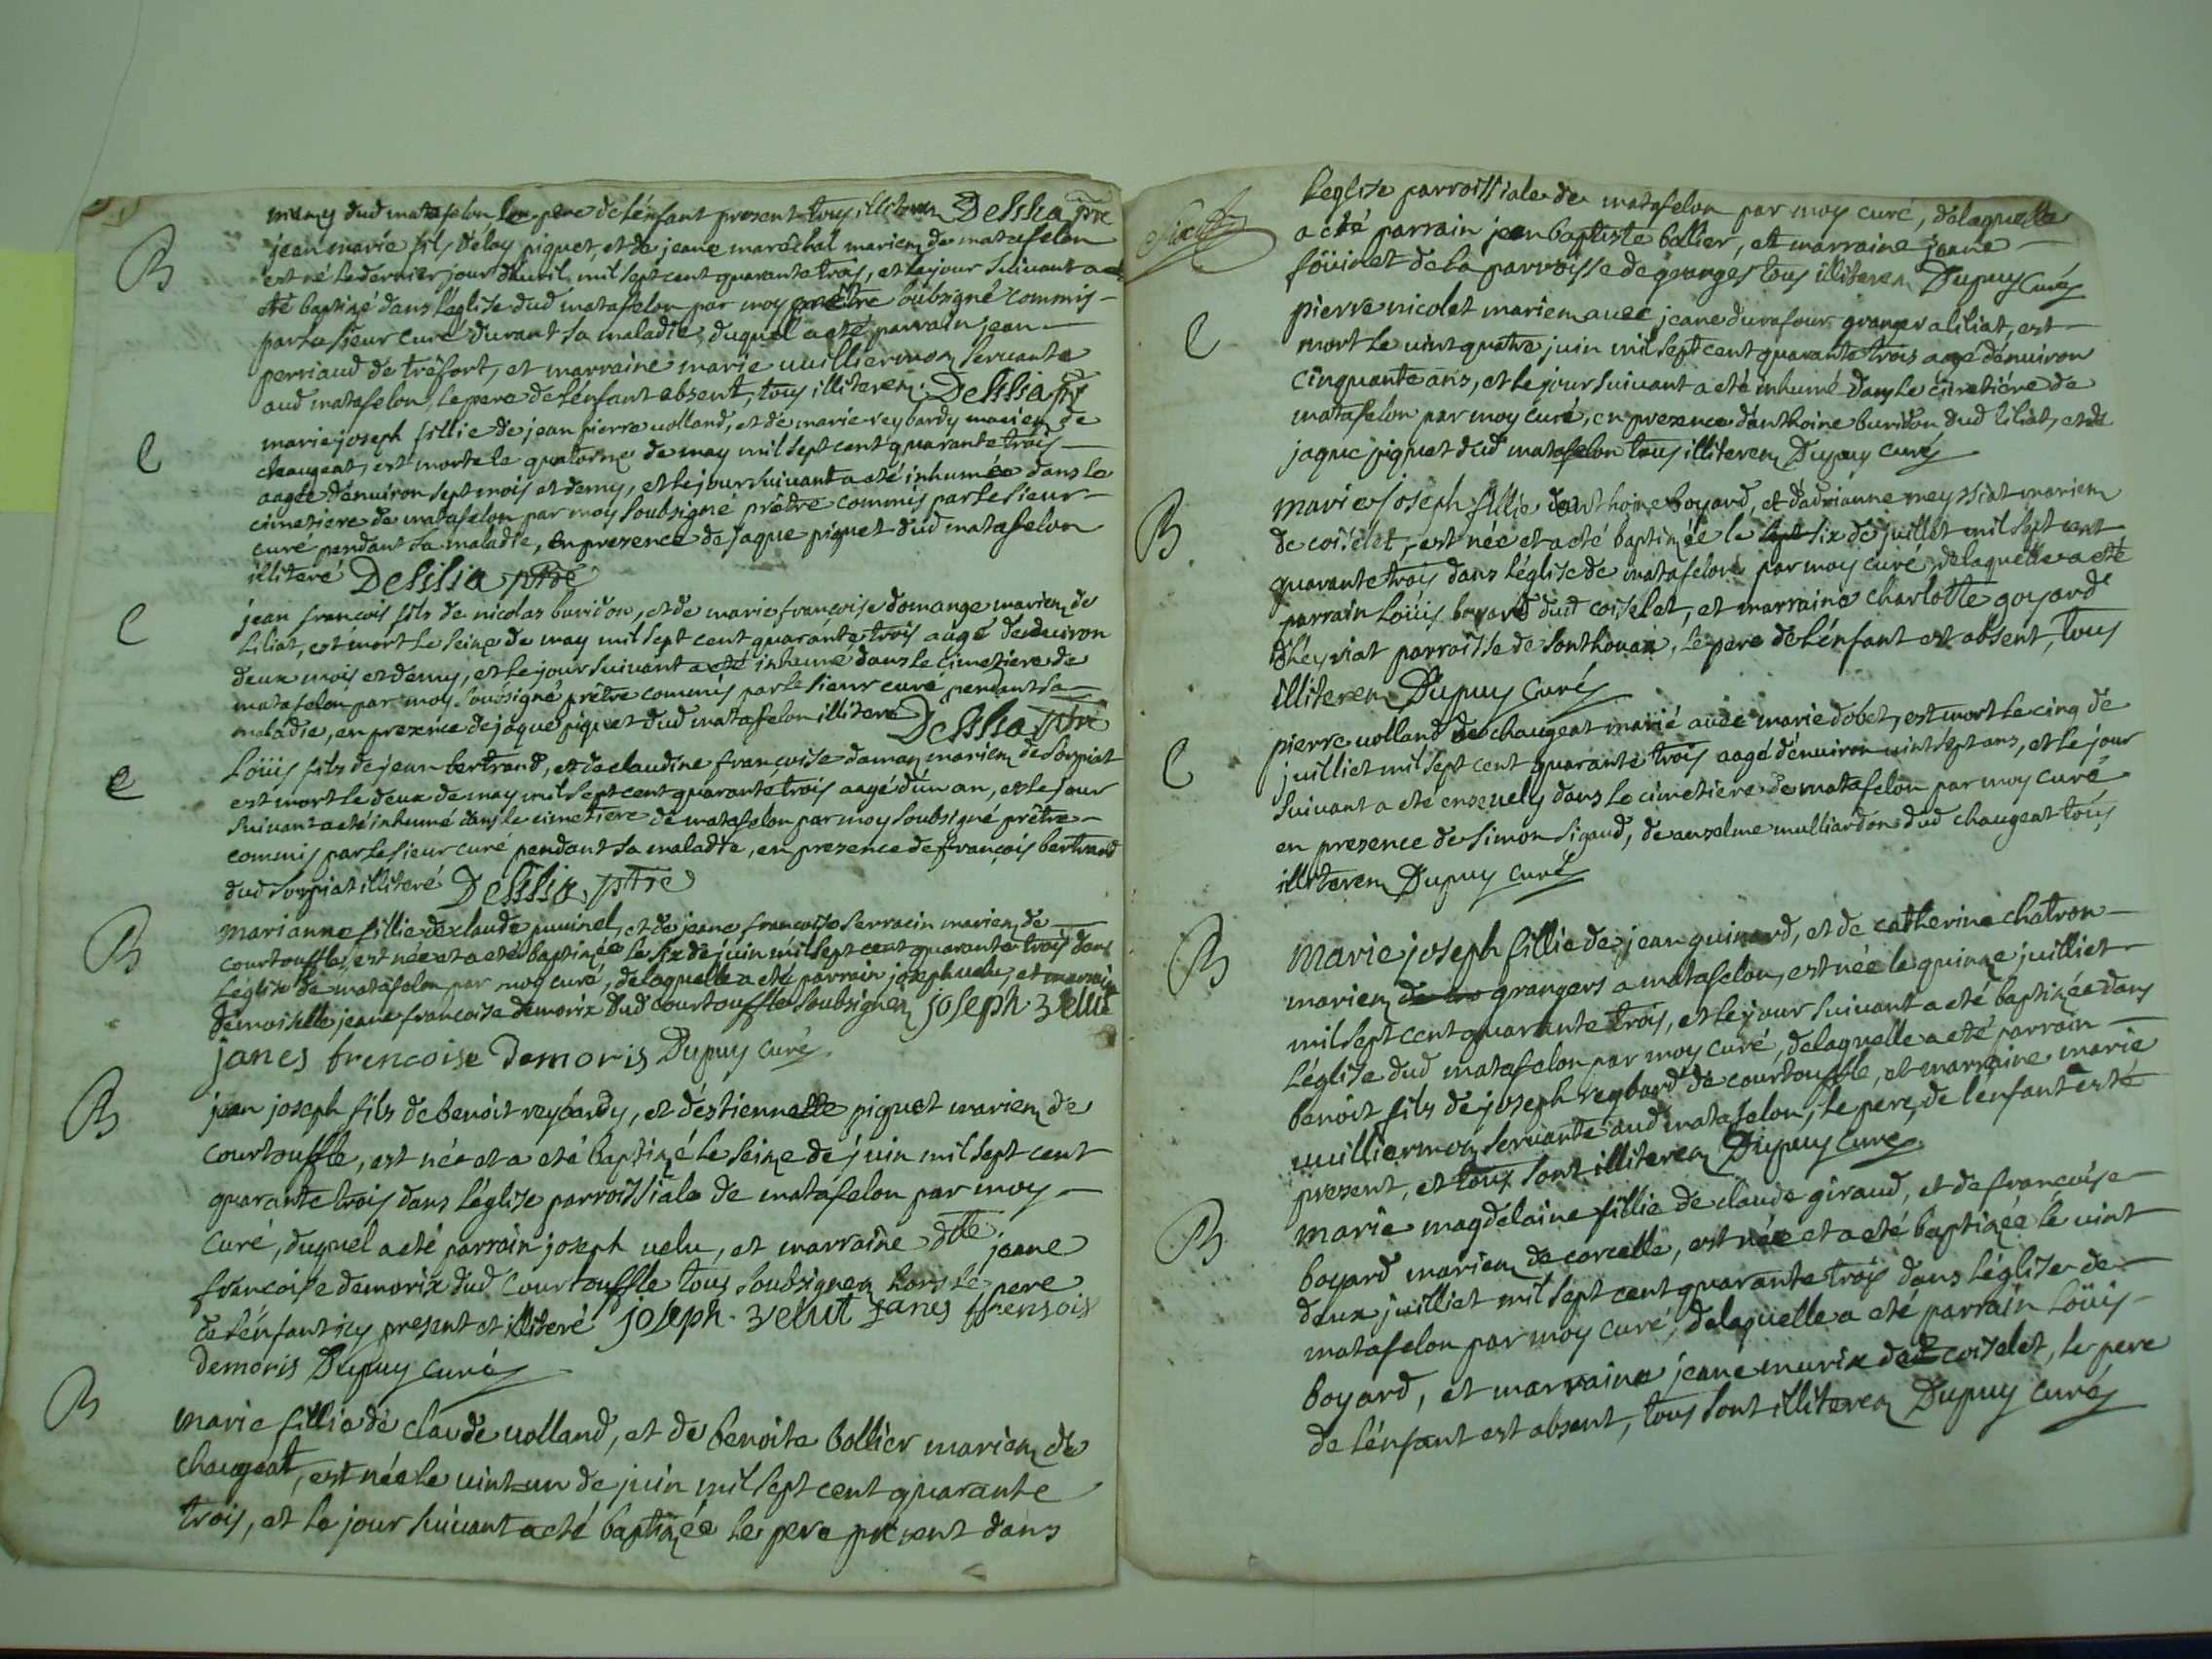 dud matafelon le pere de lénfant present tous illiterez Dessilia ptre
B jean marie fils déloy piguet, et de jeane maréchal mariez de matafelon
est né le dernier jour davril mil sept cent quarante trois, et le jour suivant a
été baptizé dans léglise dud matafelon par moy prêtre soubsigné commis
par le sieur curé durant sa maladie, duquel a eté parrain jean
perriaud de tréfort, et marraine marie vuilliermoz servante
aud matafelon, le pere de lénfant absent, tous illiterez. Dessilia ptr
C marie joseph fillie de jean pierre volland, et de marie reybardy mariez de
chaugeat, est morte le quatorze de may mil sept cent quarante trois
aagée dénviron sept mois et demy, et le jour suivant a eté inhumée dans le
cimetiere de matafelon par moy soubsigné prêtre commis par le sieur
curé pendant sa maladie, en presence de jaque piguet dud matafelon
illiteré Dessilia ptre
C jean françois fils de nicolas buridon, et de marie françoise domange mariez de
liliat, est mort le seize de may mil sept cent quarante trois aagé dénviron
deux mois et demy, et le jour suivant a eté inhumé dans le cimetiere de
matafelon par moy soubsigné prêtre commis par le sieur curé pendant sa
maladie, en presence de jaque piguet dud matafelon illiteré Dessilia ptre
C Loüis fils de jean bertrand, et de claudine françoise damaz mariez de sorpiat
est mort le deux de may mil sept cent quarante trois aagé dún an, et le jour
suivant a eté inhumé dans le cimetiere de matafelon par moy soubsigné prêtre
commis par le sieur curé pendant sa maladie, en presence de françois bertrand
dud sorpiat illiteré Dessilia ptre
B marianne fillie de claude juvinel, et de jeane françoise serracin mariez de
courtouffle, est née et a eté baptizée le six de juin mil sept cent quarante trois dans
léglise de matafelon par moy curé, delaquelle a eté parrain joseph velu, et marraine
demoiselle jeane françoise demorix dud courtouffle soubsignez joseph. Zelut
janes frencoise Demoris Dupuy curé
B jean joseph fils de benoit reybardy, et déstiennette piguet mariez de
courtouffle, est né et a eté baptizé le seize de juin mil sept cent
quarante trois dans léglise parroissiale de matafelon par moy
curé, duquel a eté parrain joseph velu, et marraine dlle jeane
françoise demorix dud courtouffle tous soubsignez hors le pere
de lénfant icy present et illiteré joseph. Zelut janes ffrensois
Demoris Dupuy curé
B marie fillie de claude volland, et de benoite bollier mariez de
chaugeat, est née le vint un de juin mil sept cent quarante
trois, et le jour suivant a eté baptizée le pere present dans
léglise parroissiale de matafelon par moy curé, delaquelle
a eté parrain jean baptiste bollier, et marraine jeane
foüinet de la parroisse de granges tous illiterez Dupuy curé
C pierre nicolet mariez avec jeane durafour granger a liliat, est
mort le vint quatre juin mil sept cent quarante trois aagé dénviron
cinquante ans, et le jour suivant a eté inhumé dans le cimetiére de
matafelon par moy curé, en presence danthoine buridon dud liliat, et de
jaque piguet dud matafelon tous illiterez Dupuy curé
B marie joseph fillie danthoine boyard, et dadrianne meyssiat mariez
de coiselet, est née et a eté baptizée le sept six de juillet mil sept cent
quarante trois dans léglise de matafelon par moy curé, delaquelle a eté
parrain Loüis boyard dud coiselet, et marraine charlotte goyard
dheyriat parroisse de sonthonax, le pere de lénfant est absent, tous
illiterez Dupuy curé
C pierre volland de chaugeat marié avec marie dobet, est mort le cinq de
juilliet mil sept cent quarante trois aagé dénviron vint sept ans, et le jour
suivant a eté ensevely dans le cimetiere de matafelon par moy curé
en presence de simon sigaud, de anselme mulliardon dud chaugeat tous
illiterez Dupuy curé
B Marie joseph fillie de jean guinard, et de catherine chatron
mariez de les grangers a matafelon, est née le quinze juilliet
mil sept cent quarante trois, et le jour suivant a eté baptizée dans
léglise dud matafelon par moy curé, delaquelle a eté parrain
benoit fils de joseph reybard de courtouffle, et marraine marie
vuilliermoz servante aud matafelon, le pere de lénfant esté
present, et tous sont illiterez Dupuy curé
B Marie magdelaine fillie de claude giraud, et de françoise
boyard mariez de corcelle, est née et a eté baptizée le vint
deux juilliet mil sept cent quarante trois dans léglise de
matafelon par moy curé, delaquelle a eté parrain Loüis
boyard, et marraine jeane murix dud coiselet, le pere
de lénfant est absent, tous sont illiterez Dupuy curé